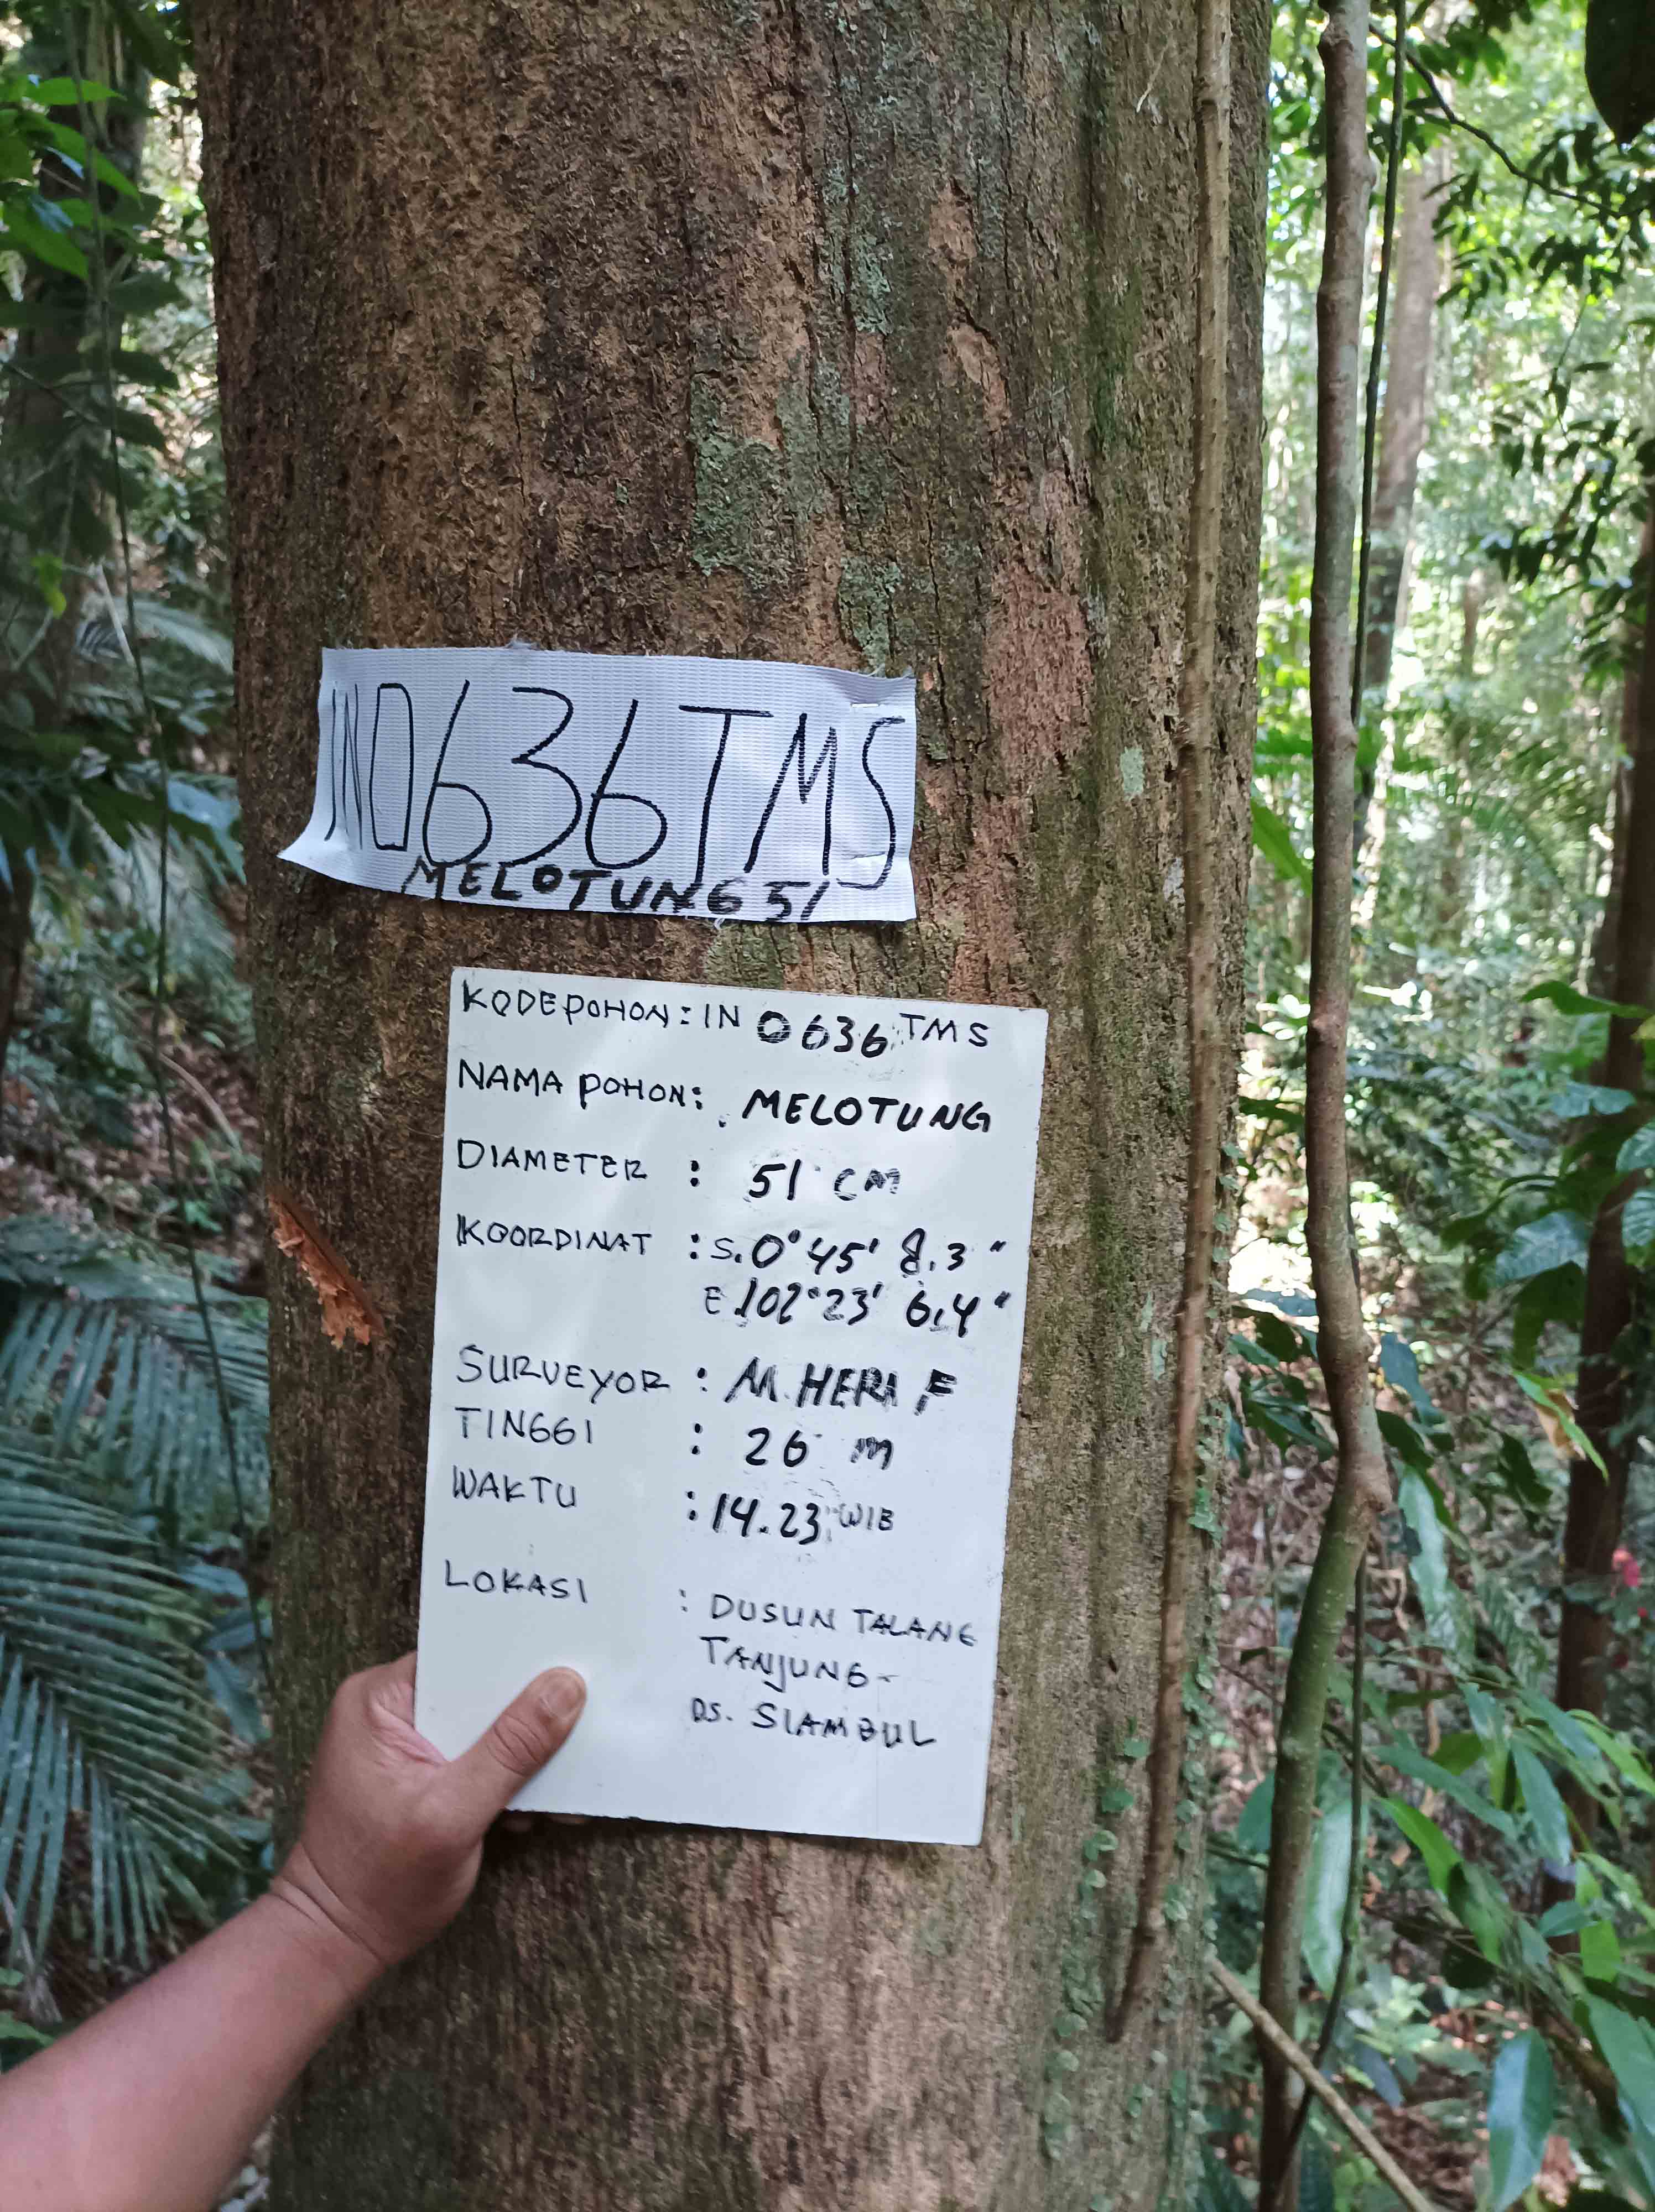 IN0636TMS
MELOTUNG 51
KODE POHON : IN 0636 TMS
NAMA POHON : MELOTUNG
DIAMETER : 51 CM
KOORDINAT : S. 0° 45' 8.3"
E 102° 23' 6.4"
SURVEYOR : M. HERI F
TINGGI : 26 m
WAKTU : 14.23 WIB
LOKASI : DUSUN TALANG
TANJUNG-
DS. SIAMBUL